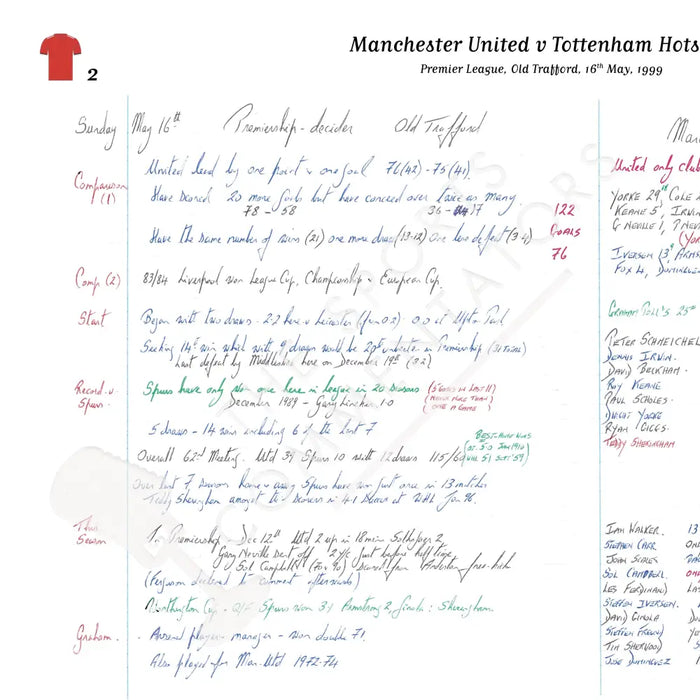 2
Manchester United v Tottenham Hots
Premier League, Old Trafford, 16th May, 1999
Sunday May 16th Premiership - decider Old Trafford
United lead by one point & one goal 76(42) - 75(41).
Comparison (1)
Have scored 20 more goals but have conceded over twice as many.
78 - 58 36 - 17
122 GOALS 76
Have the same number of wins (21) one more draw (13-12) One less defeat (3-4)
Comp (2) 83/84 Liverpool won League Cup, Championship & European Cup.
Start Began with two draws - 2.2 here v Leicester 0.0 at Upton Park
Seeking 14th win which with 9 draws would be 20th unbeaten in Premiership
Last defeat by Middlesbro here on December 19th (3.2)
Record v Spurs
Spurs have only won once here in league in 20 seasons
(5 GOALS IN LAST 11
NEVER MORE THAN
ONE A GAME)
December 1989 - Gary Lineker 1.0
5 draws - 14 wins including 6 of the last 7
BEST HOME WINS
Overall 62nd Meeting. Utd 39 Spurs 10 with 12 draws 115/60
Over last 7 Seasons home & away Spurs have won just once in 13 matches
Teddy Sheringham amongst the scorers in 4.1 success at WHL Jan 96.
This Season
In Premiership - Dec 12th Utd 2 up in 18 min Solskjaer 2
Gary Neville sent off 2 y/c just before half time
Sol Campbell 2 (70 & 90) scored from Anderton free-kick
(Ferguson declined to comment afterwards)
Worthington Cup - Q/F Spurs won 3.1 Armstrong 2, Ginola : Sheringham
Graham. Arsenal player & manager - won double 71.
Also played for Man. Utd 1972-74
Man
United only club
YORKE 29, COLE 2
KEANE 5, IRWIN
G NEVILLE 1, P NEV
(YOR
IVERSEN 13, ARMS
FOX 4, DOMINGUEZ
GRAHAM POLL'S 25th
PETER SCHMEICHEL
DENNIS IRWIN.
DAVID BECKHAM.
ROY KEANE
PAUL SCHOLES.
DWIGHT YORKE
RYAN GIGGS.
TEDDY SHERINGHAM
IAN WALKER. 13
STEPHEN CARR. ON
JOHN SCALES DA
SOL CAMPBELL. ON
LES FERDINAND LA
STEFFEN IVERSEN.
DAVID GINOLA D
STEFFEN FREUND
TIM SHERWOOD
JOSE DOMINGUEZ
THE SPORTS COMMENTATORS